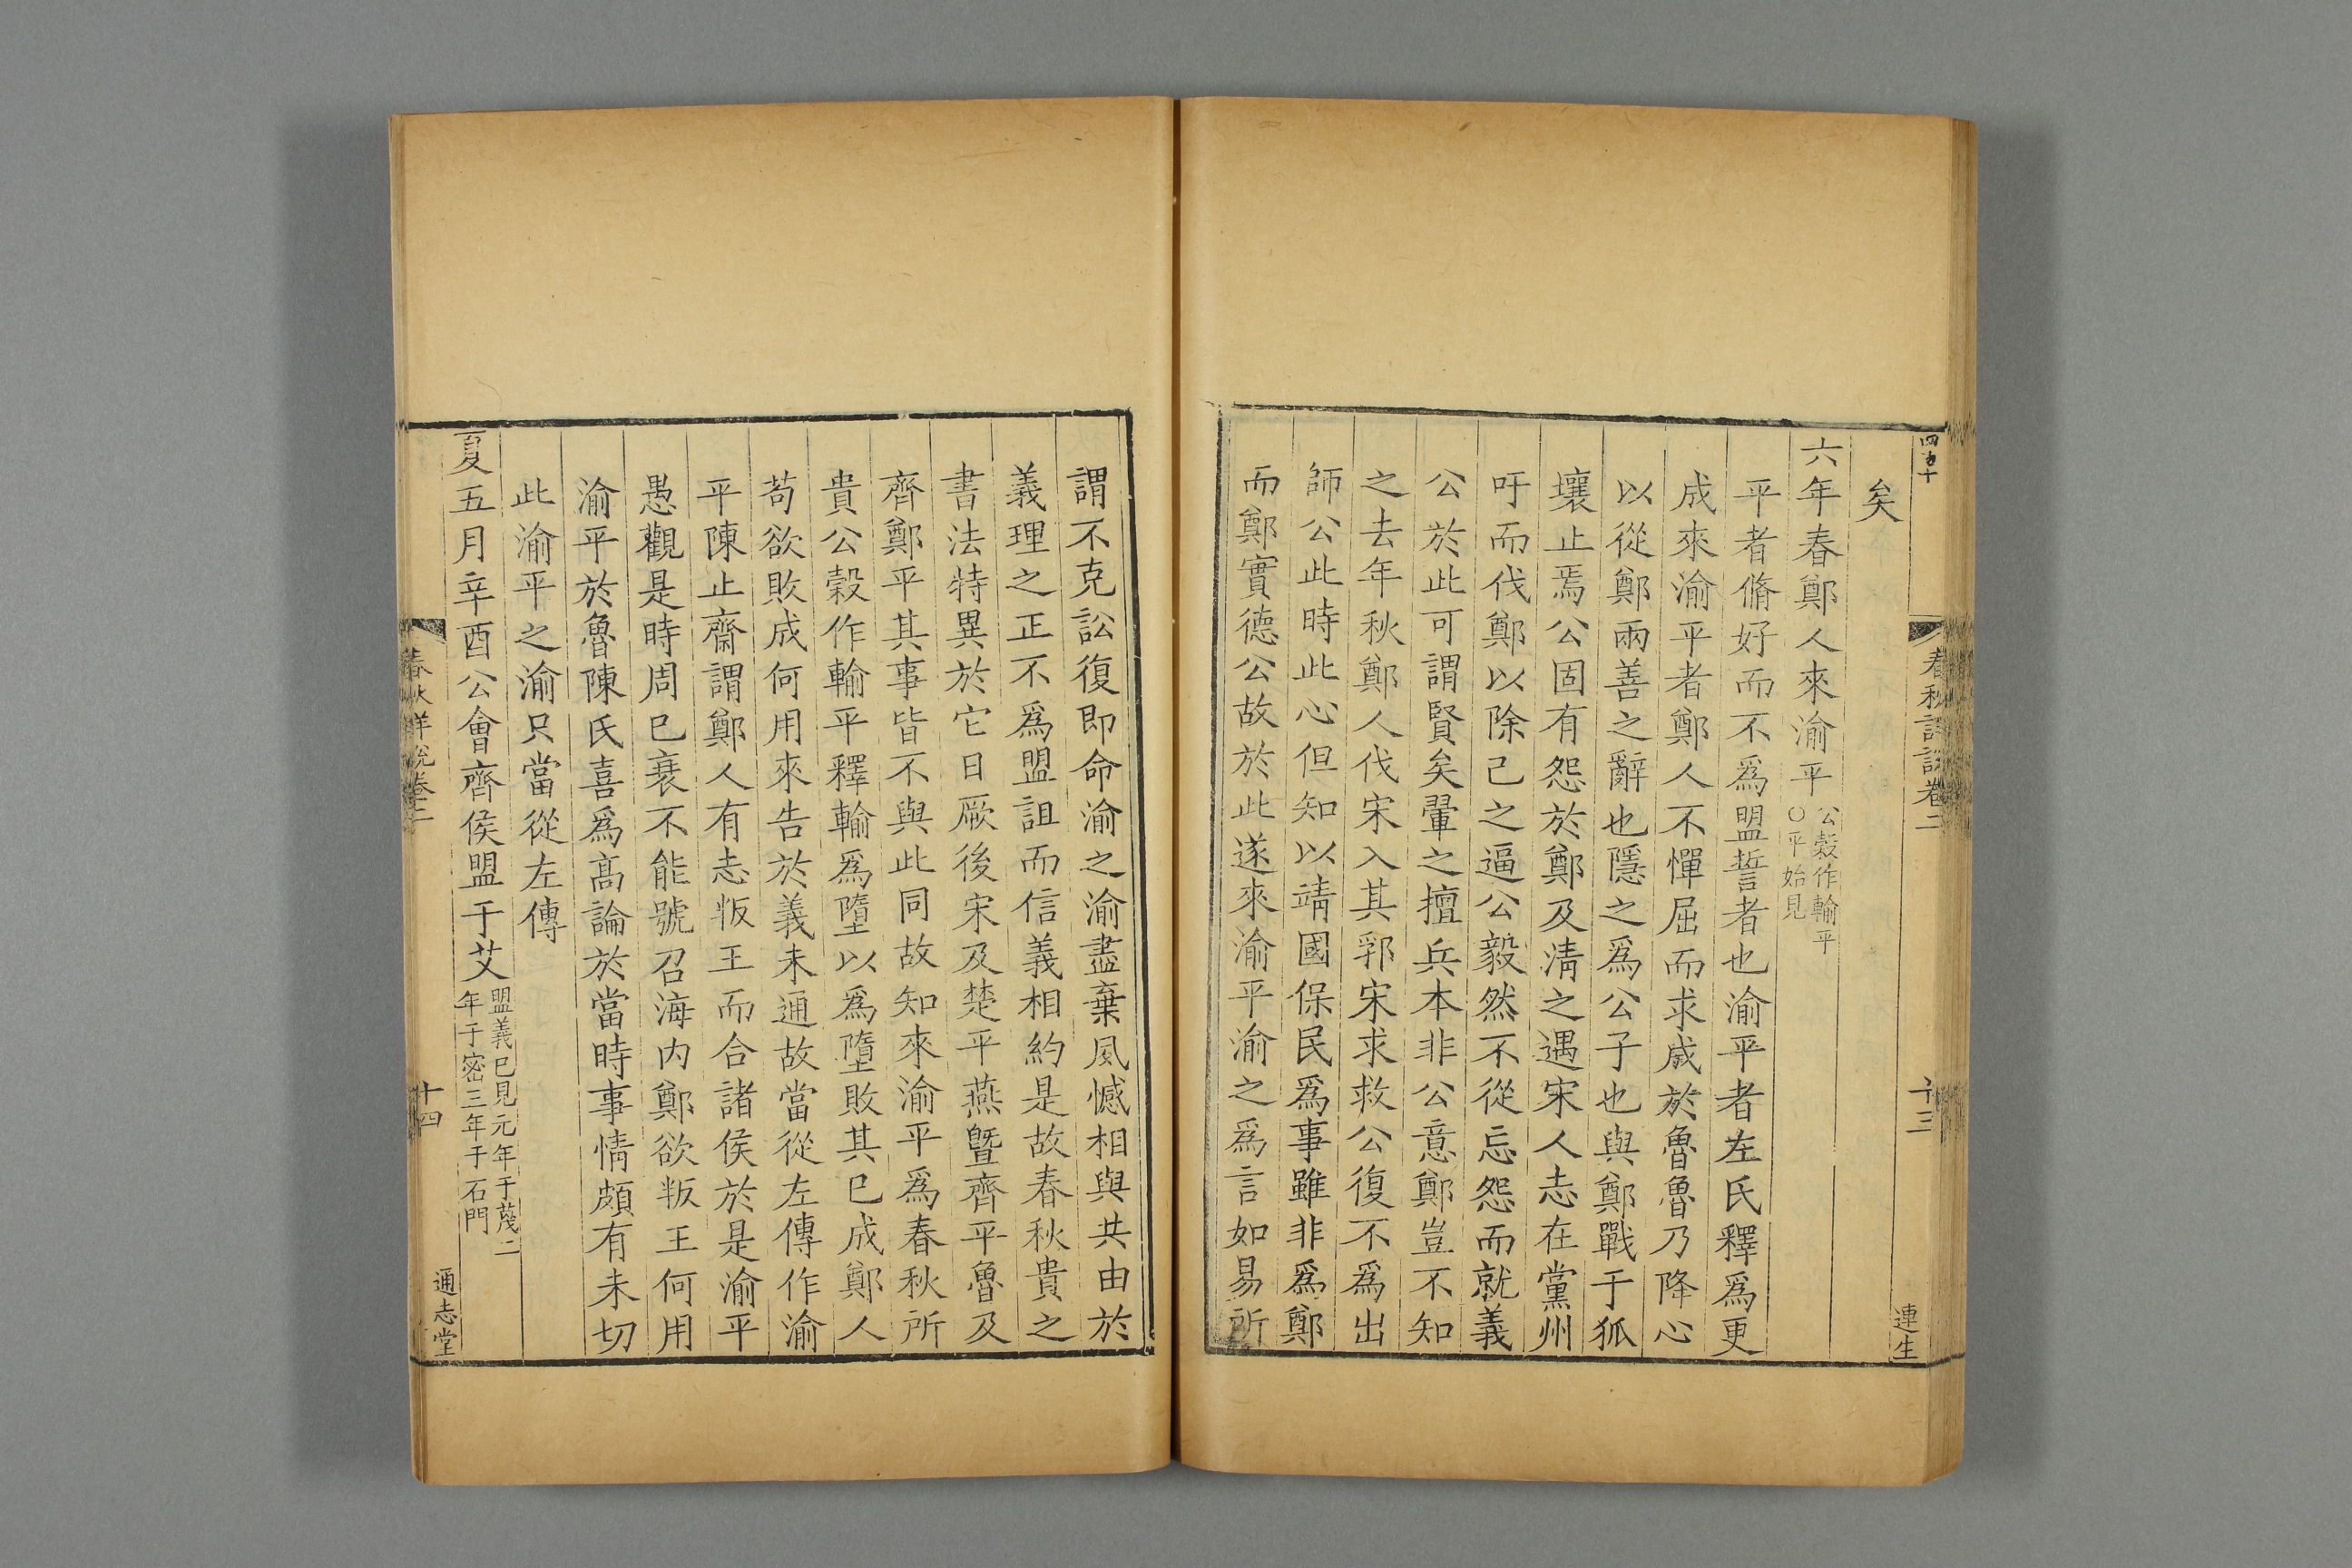 四百十
春秋詳說卷二
十三
連生
矣
六年春鄭人來渝平
公穀作輸平
○平始見
平者脩好而不爲盟誓者也渝平者左氏釋爲更
成來渝平者鄭人不憚屈而求成於魯魯乃降心
以從鄭兩善之辭也隱之爲公子也與鄭戰于狐
壤止焉公固有怨於鄭及淸之遇宋人志在黨州
吁而伐鄭以除己之逼公毅然不從忘怨而就義
公於此可謂賢矣翬之擅兵本非公意鄭豈不知
之去年秋鄭人伐宋入其郛宋求救公復不爲出
師公此時此心但知以靖國保民爲事雖非爲鄭
而鄭實德公故於此遂來渝平渝之爲言如易所
謂不克訟復即命渝之渝盡棄夙憾相與共由於
義理之正不爲盟詛而信義相約是故春秋貴之
書法特異於它日厥後宋及楚平燕曁齊平魯及
齊鄭平其事皆不與此同故知來渝平爲春秋所
貴公穀作輸平釋輸爲墮以爲墮敗其已成鄭人
苟欲敗成何用來告於義未通故當從左傳作渝
平陳止齋謂鄭人有志叛王而合諸侯於是渝平
愚觀是時周已衰不能號召海内鄭欲叛王何用
渝平於魯陳氏喜爲高論於當時事情頗有未切
此渝平之渝只當從左傳
夏五月辛酉公會齊侯盟于艾
盟義已見元年于蔑二
年于密三年于石門
春秋詳說卷二
十四
通志堂